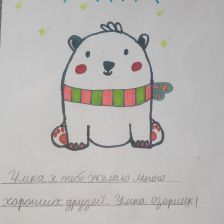 Умка я тебе желаю много
хороших друзей. Умка озорник!